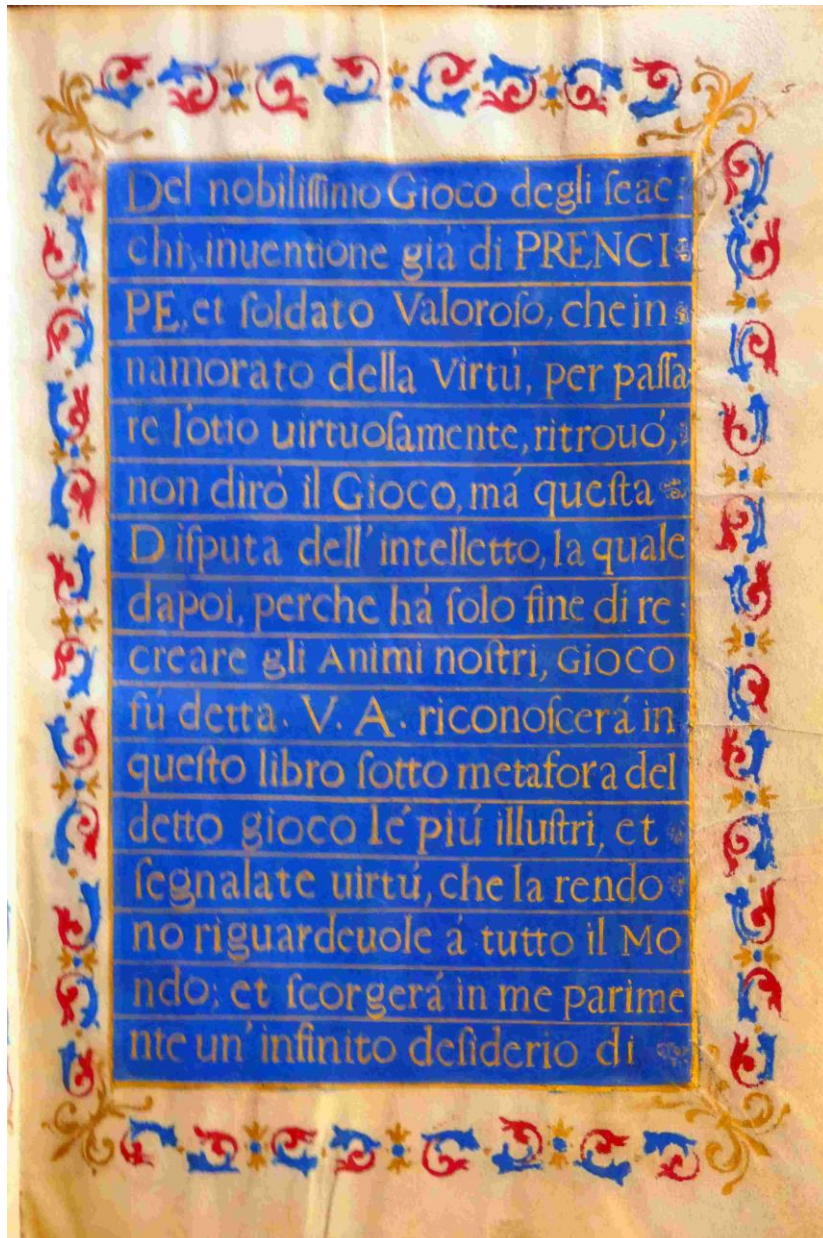 Del nobiliſſimo Gioco degli ſcac:
chi, inuentione giá di PRENCI
PE, et ſoldato Valoroſo, che in
namorato della Virtú, per paſſa:
re l'otio uirtuoſamente, ritrouó,
non diró il Gioco, má queſta
Diſputa dell' intelletto, la quale
dapoi, perche há ſolo fine di re:
creare gli Animi noſtri, GIOCO
fú detta. V. A. riconoſcerá in
queſto libro ſotto metafora del
detto gioco lé piú illuſtri, et
ſegnalate uirtú, che la rendo
no riguardeuole á tutto il MO
ndo; et ſcorgerá in me parime
nte un' infinito deſiderio di